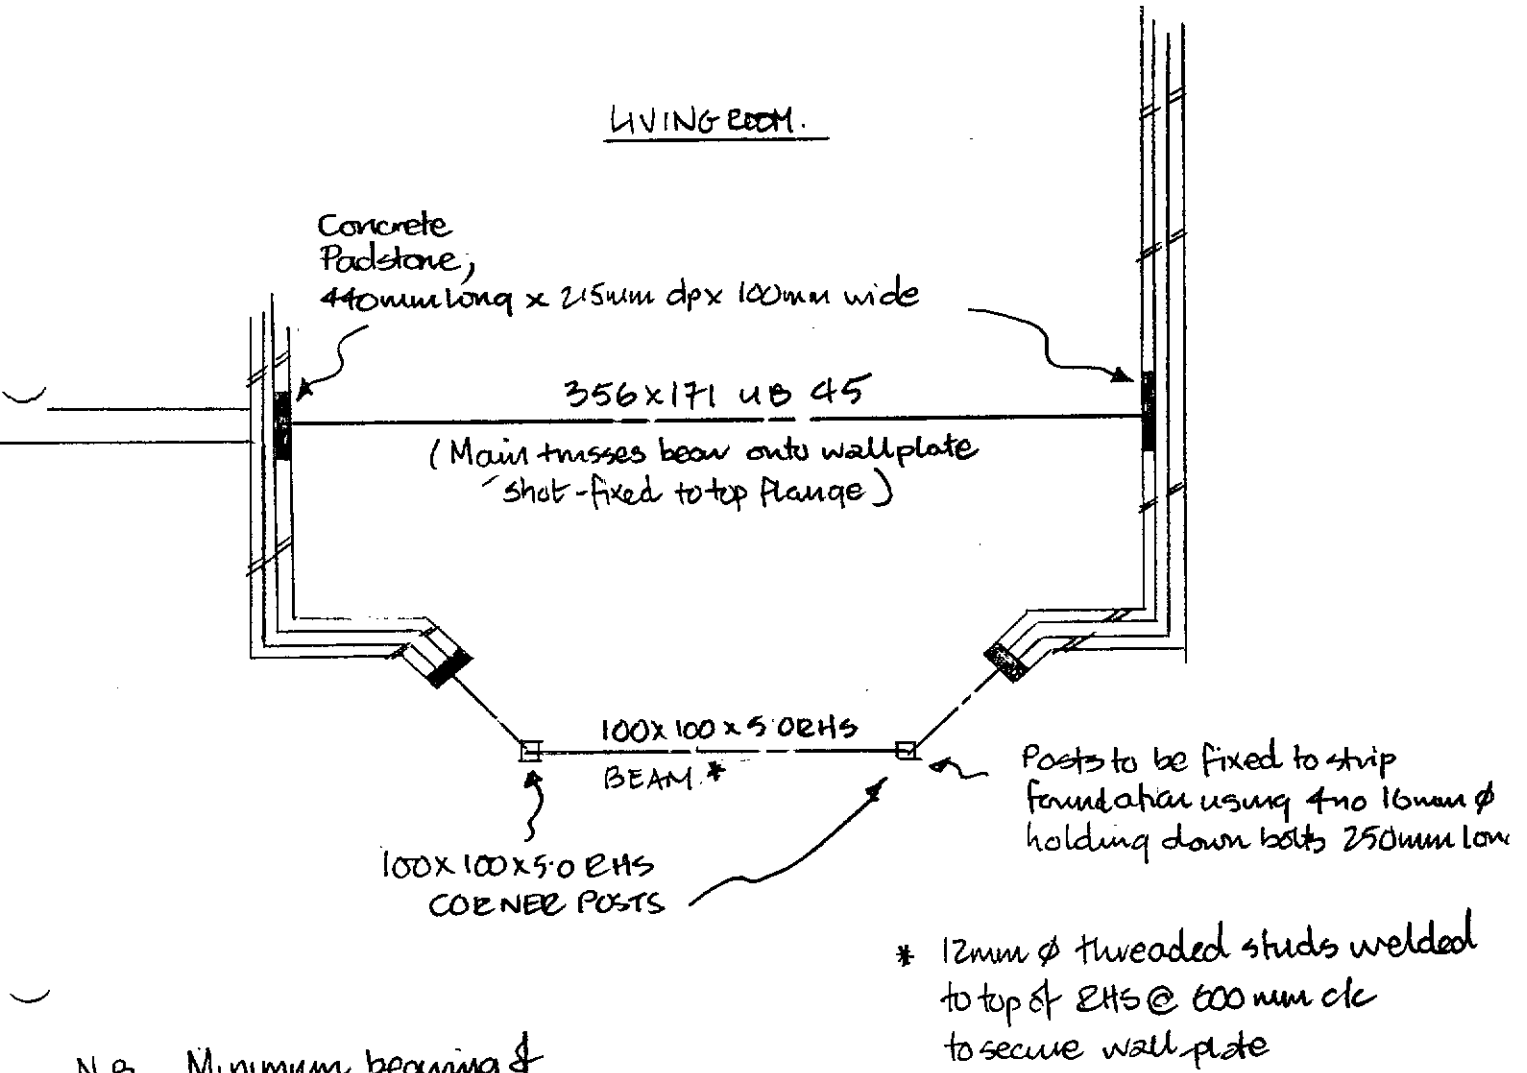 LIVING ROOM.
Concrete
Padstone,
440mm long x 215mm dp x 100mm wide
356x171 UB 45
(Main trusses bear onto wallplate
shot-fixed to top flange)
100x100x5.0 RHS
BEAM *
Posts to be fixed to strip
foundation using 4no 16mm ϕ
holding down bolts 250mm long
100x100x5.0 RHS
CORNER POSTS
* 12mm ϕ threaded studs welded
to top of RHS @ 600mm c/c
to secure wall plate
N.B. Minimum bearing of